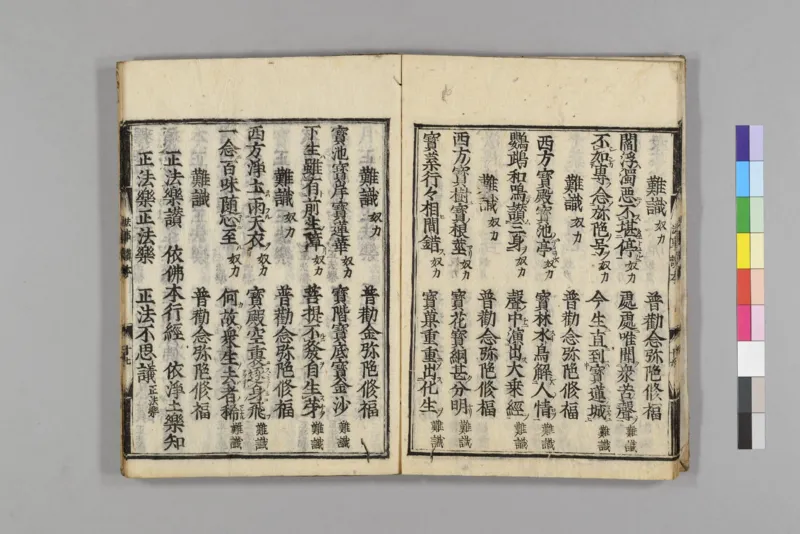 難識 奴力 普勸念弥陁修福
閻浮濁惡不堪停 奴力 處處唯聞衆苦聲 難識
不如專念弥陁号 奴力 今生直到寶蓮城 難識
難識 奴力 普勸念弥陁修福
西方寶殿寶池亭 奴力 寶林水鳥解人情 難識
鸚鵡和鳴讃三身 奴力 聲中演出大乘經 難識
難識 奴力 普勸念弥陁修福
西方寶樹寶根莖 奴力 寶花寶網甚分明 難識
寶葉行々相間錯 奴力 寶菓重重出化生 難識
難識 奴力 普勸念弥陁修福
寶池寶岸寶蓮華 奴力 寶階寶底寶金沙 難識
下生雖有前生障 奴力 菩提不發自生芽 難識
難識 奴力 普勸念弥陁修福
西方淨土雨天衣 奴力 寶殿空裏逐身飛 難識
一念百味随心至 奴力 何故衆生去者稀 難識
難識 普勸念弥陁修福
正法樂讃 依佛本行經 依淨土樂知
正法樂正法樂 正法不思議 正法樂